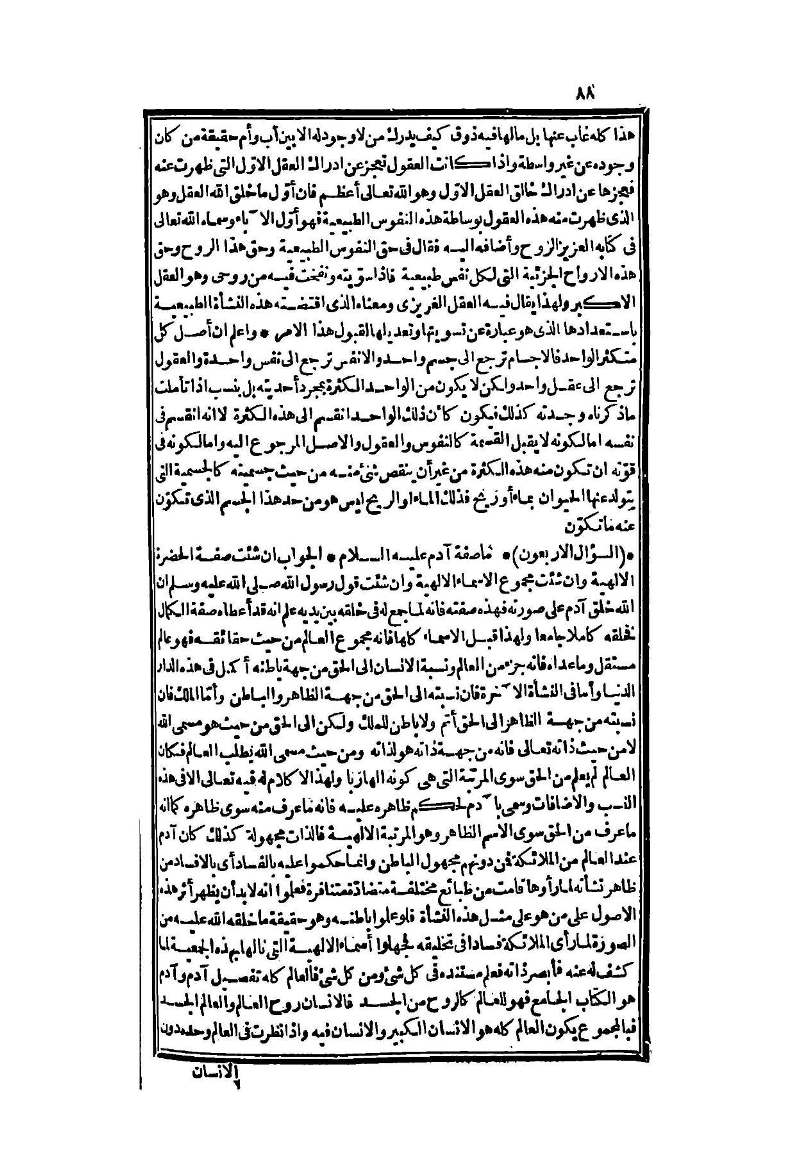 ٨٨
هذا كله غاب عنها بل مالها فيه ذوق كيف يدرك من لا وجود له الا بين أب وأم حقيقة من كان
وجوده عن غير واسطة واذا كانت العقول تعجز عن ادراك العقل الاول التى ظهرت عنه
فعجزها عن ادراك خالق العقل الاول وهو الله تعالى أعظم فان أول ما خلق الله العقل وهو
الذى ظهرت منه هذه العقول بوساطة هذه النفوس الطبيعية فهو أول الآباء وسماه الله تعالى
فى كتابه العزيز الروح وأضافه اليه فقال فى حق النفوس الطبيعية وحق هذا الروح وحق
هذه الارواح الجزئية التى لكل نفس طبيعية فاذا سويته ونفخت فيه من روحى وهو العقل
الاكبر ولهذا يقال فيه العقل الغريزى ومعناه الذى اقتضته هذه النشأة الطبيعية
باستعدادها الذى هو عبارة عن تسويتها وتعديلها لقبول هذا الامر * واعلم ان أصل كل
متكثر الواحد فالاجسام ترجع الى جسم واحد والانفس ترجع الى نفس واحدة والعقول
ترجع الى عقل واحد ولكن لا يكون من الواحد الكثرة بمجرد أحديته بل بنسب اذا تأملت
ماذكرناه وجدته كذلك فيكون كأن ذلك الواحد انقسم الى هذه الكثرة لا انه انقسم فى
نفسه اما لكونه لا يقبل القسمة كالنفوس والعقول والاصل المرجوع اليه واما لكونه فى
قوته ان تكون منه هذه الكثرة من غير أن ينقص شئ منه من حيث جسميته كالجسمية التى
يتولد عنها الحيوان بماء أو ريح فذلك الماء او الريح ليس هو من حد هذا الجسم الذى تكون
عنه ما تكون
*(السؤال الاربعون)* ماصفة آدم عليه السلام * الجواب ان شئت صفة الحضرة
الالهية وان شئت مجموع الاسماء الالهية وان شئت قول رسول الله صلى الله عليه وسلم ان
الله خلق آدم على صورته فهذه صفته فانه لما جمع له فى خلقه بين يديه علم انه قد أعطاه صفة الكمال
فخلقه كاملا جامعا ولهذا قبل الاسماء كلها فانه مجموع العالم من حيث حقائقه فهو عالم
مستقل وما عداه فانه جزء من العالم ونسبة الانسان الى الحق من جهة باطنه أكمل فى هذه الدار
الدنيا وأما فى النشأة الآخرة فان نسبته الى الحق من جهة الظاهر والباطن وأما الملك فان
نسبته من جهة الظاهر الى الحق أتم ولا باطن للملك ولكن الى الحق من حيث هو مسمى الله
لا من حيث ذاته تعالى فانه من جهة ذاته هو لذاته ومن حيث مسمى الله يطلب العالم فكان
العالم لم يعلم من الحق سوى المرتبة التى هى كونه الها ربا ولهذا لا كلام له فيه تعالى الا فى هذه
النسب والاضافات وسمى بآدم لحكم ظاهره عليه فانه ماعرف منه سوى ظاهره كما انه
ما عرف من الحق سوى الاسم الظاهر وهو المرتبة الالهية فالذات مجهولة كذلك كان آدم
عند العالم من الملائكة فمن دونهم مجهول الباطن وانما حكموا عليه بالفساد أى بالافساد من
ظاهر نشأته لما رأوها قامت من طبائع مختلفة متضادة متنافرة فعلموا انه لا بد أن يظهر أثر هذه
الاصول على من هو على مثل هذه النشأة فلو علموا باطنه وهو حقيقة ما خلقه الله عليه من
الصورة لما رأى الملائكة فسادا فى تخليقه فجهلوا أسماء الالهية التى نالها بهذه الجمعية لما
كشف له عنه فأبصر ذاته فعلم مستنده فى كل شئ ومن كل شئ فالعالم كله تفصيل آدم وآدم
هو الكتاب الجامع فهو للعالم كالروح من الجسد فالانسان روح العالم والعالم الجسد
فبالمجموع يكون العالم كله هو الانسان الكبير والانسان فيه واذا نظرت فى العالم وحده دون
الانسان